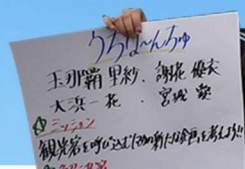 うちな〜んちゅ
玉那覇 里紗、謝花 優衣
大浜 一花、宮城 葵
☆ミッション
観光客を呼び込むための新たな企画を考えよう!!